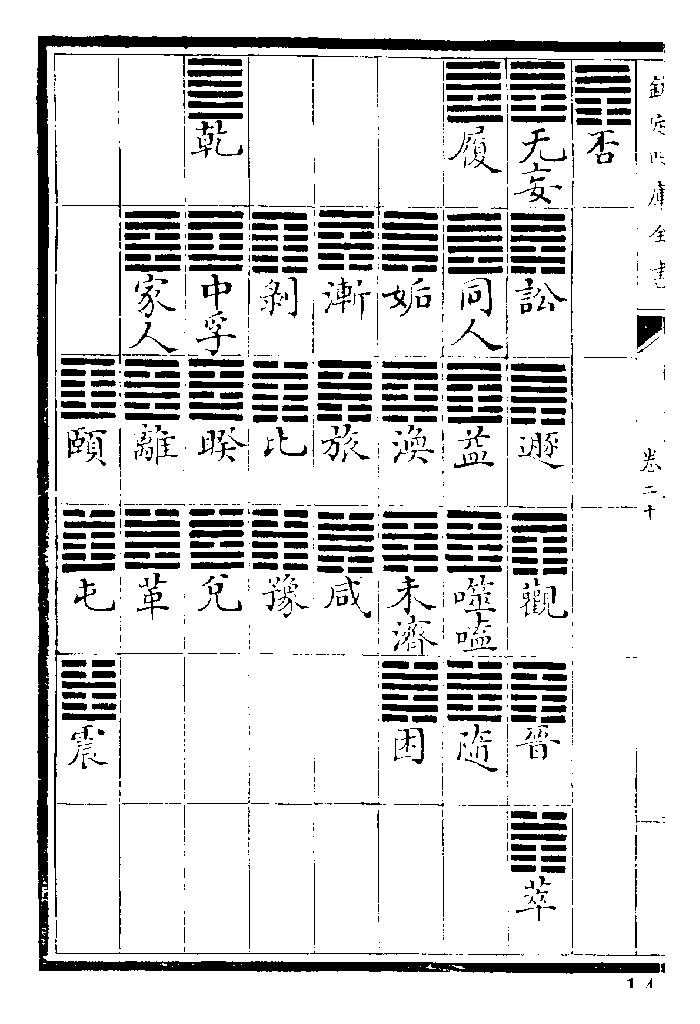 欽定四庫全書
卷二十
否
无妄 訟 遯 觀 晉 萃
履 同人 益 噬嗑 隨
姤 渙 未濟 困
漸 旅 咸
剝 比 豫
乾 中孚 睽 兌
家人 離 革
頤 屯 震